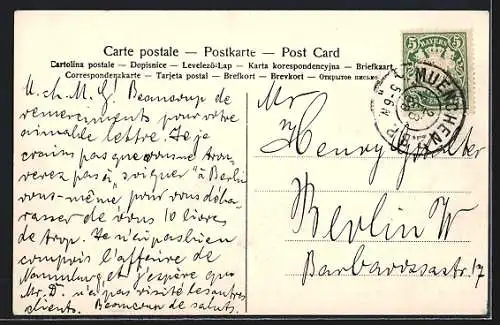 Carte postale — Postkarte — Post Card
Cartolina postale — Dopisnice — Levelező-Lap — Karta korespondencyjna — Briefkaart
Correspondenzkarte — Tarjeta postal — Brefkort — Brevkort — Открытое письмо
5 BAYERN 5
MUENCHEN
U. ch. M. G! Beaucoup de
remerciments pour votre
aimable lettre. Je
crains pas que vous ne trou-
verez pas à "soigner" à Berlin
vous-même pour vous déba-
rasser de vous 10 livres
de trop. Je n'ai pas bien
compris l'affaire de
Naumburg et j'espère que
Mr. D. n'ai pas visité les autres
clients. Beaucoup de saluts.
Mr
Henry
Berlin W
Barbarossastr. 17